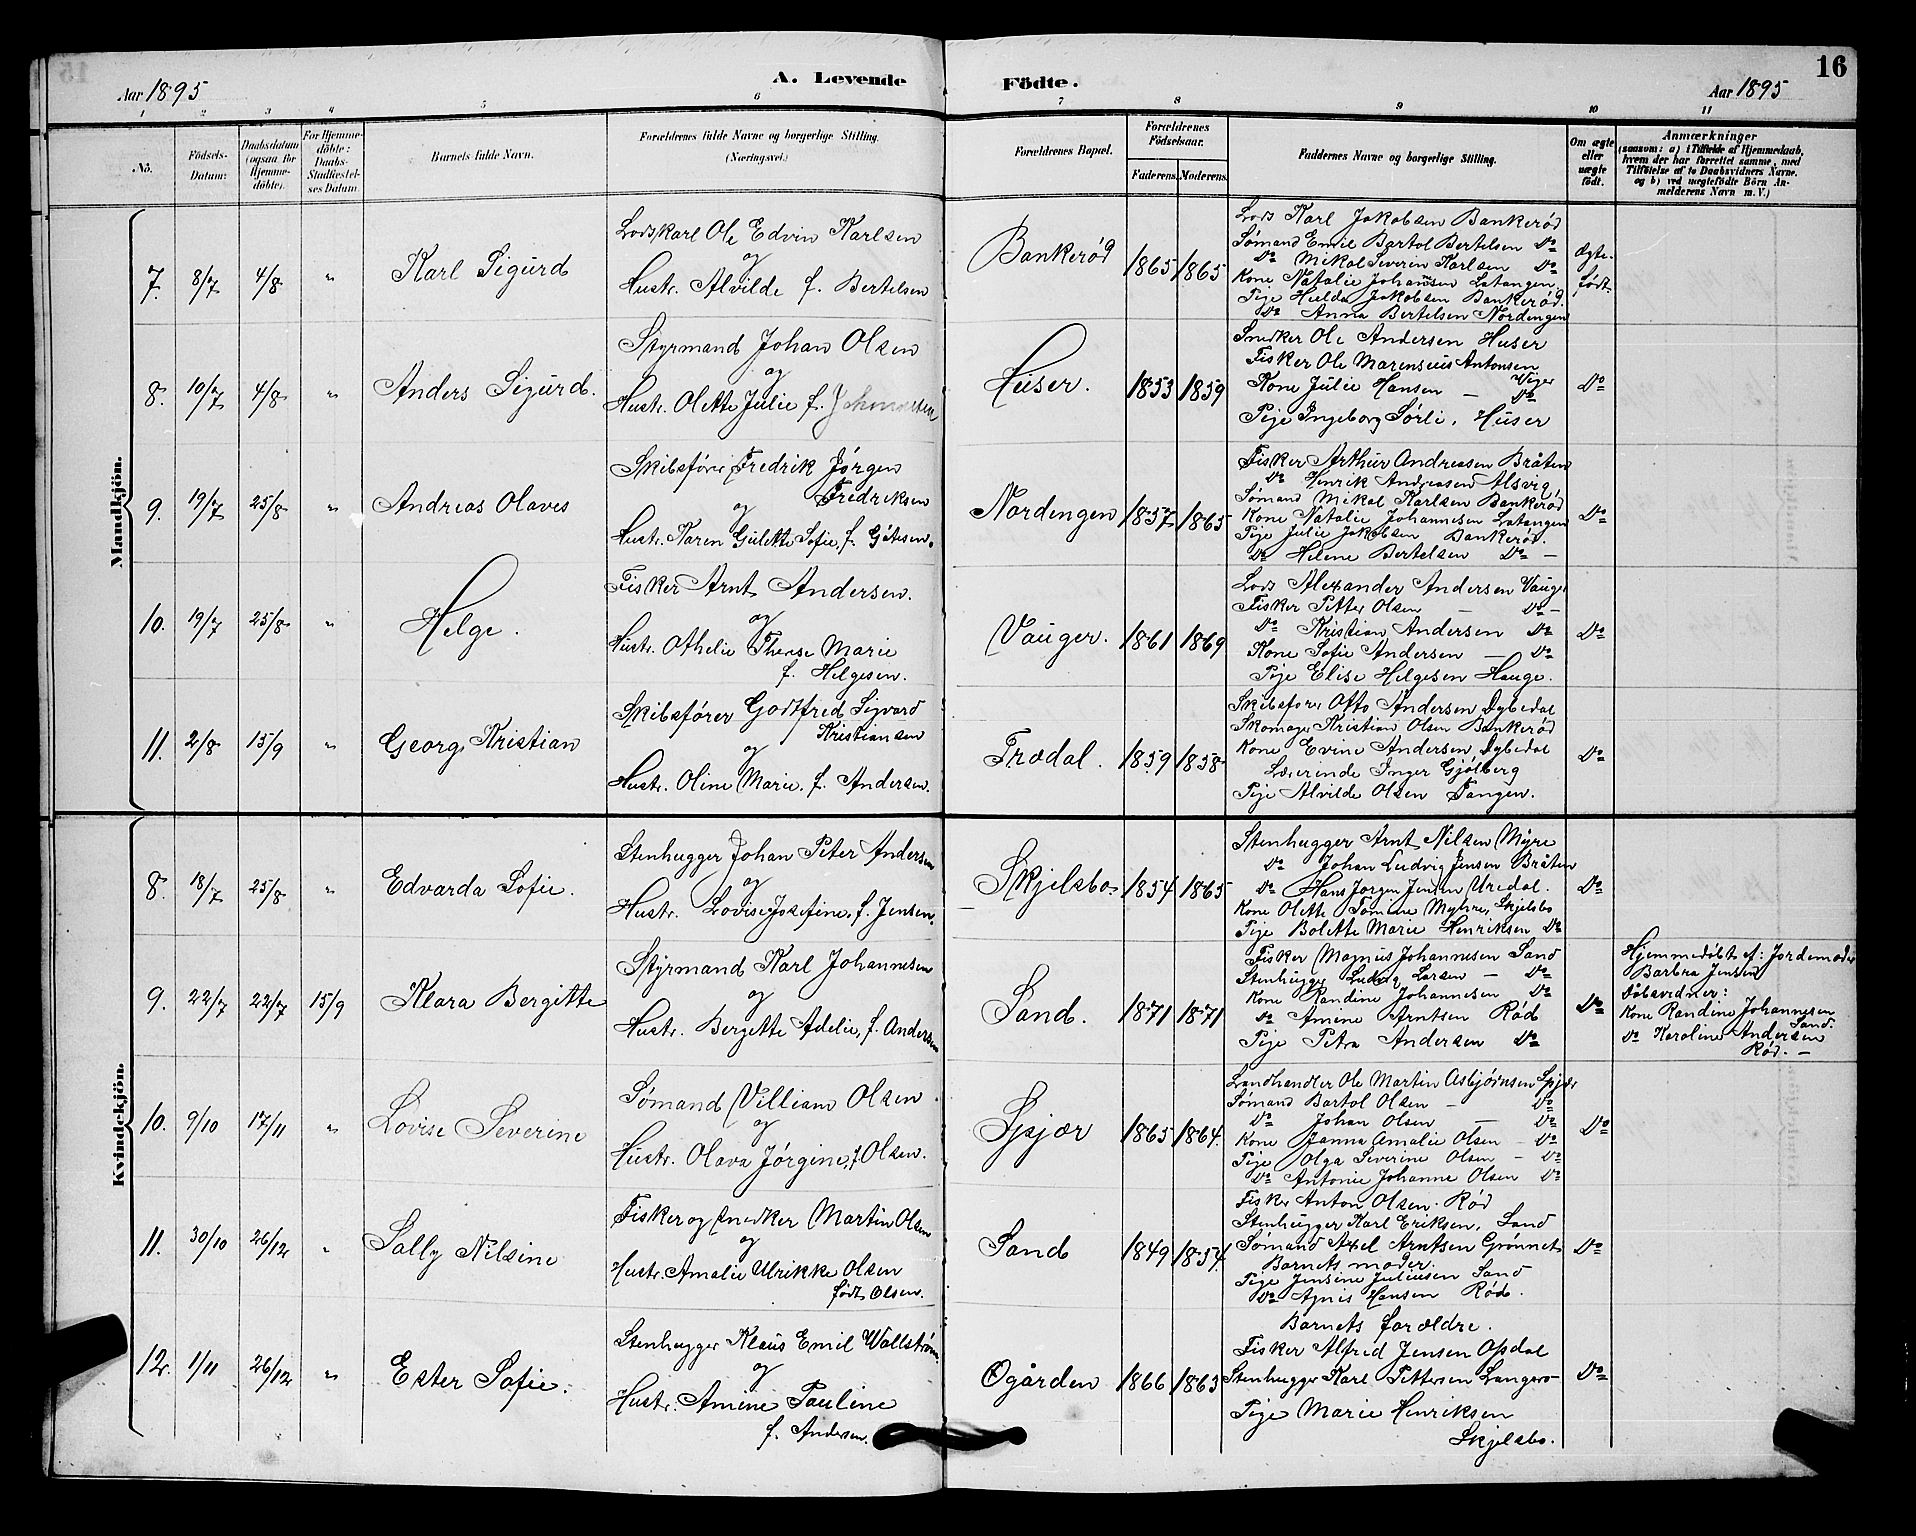 16
A. Levende Födte.
Aar 1895
Aar 1895
1 2 3 4 5 6 7 8 9 10 11
No.
Födsels-
Datum:
Daabsdatum
(ogsaa for
Hjemme-
döbte).
For Hjemme-
döbte:
Daabs-
Stadfæstel-
ses Datum.
Barnets fulde Navn.
Forældrenes fulde Navne og borgerlige Stilling.
(Næringsvei.)
Forældrenes Bopæl.
Forældrenes
Födselsaar.
Faderens. Moderens.
Faddernes Navne og borgerlige Stilling.
Om ægte
eller
uægte
födt.
Anmærkninger
(saasom: a) i Tilfælde af Hjemmedaab,
hvem der har forrettet samme, med
Tilföielse af to Daabsvidners Navne.
og b) ved uægtefödte Börn An-
melderens Navn m. V.)
Mandkjön.
7. 8/7 4/8 " Karl Sigurd
Lodskarl Ole Edvin Karlsen
og
Hustr. Alvilde f. Bertelsen
Bankerød 1865 1865
Lods Karl Jakobsen Bankerød
Sømand Emil Bartol Bertelsen Do
Do Mikal Severin Karlsen Do
Kone Natalie Johansen Latangen
Pige Hulda Jakobsen Bankerød.
Do Anna Bertelsen Nordengen
Ægte-
født
8. 10/7 4/8 " Anders Sigurd.
Styrmand Johan Olsen
og
Hustr. Olette Julie f.
Huser. 1853 1859
Snedker Ole Andersen Huser
Fisker Ole Marensius Antonsen
Viger
Kone Julie Hansen — Do
Pige Ingeborg Sørli, Huser
Do
9. 19/7 25/8 " Andreas Olaves
Skibsfører Fredrik Jørgen
Fredriksen
og
Hustr. Karen Gulette Sofie, f. Götesen.
Nordengen 1857 1865
Fisker Arthur Andreasen Bråten
Do Henrik Andreasen Alsvig,
Sømand Mikal Karlsen Bankerød
Kone Natalie Johannesen Latangen
Pige Julie Jakobsen Bankerød.
Do Helene Bertelsen Do —
Do
10. 19/7 25/8 " Helge.
Fisker Arnt Andersen.
og
Hustr. Othelie Therese Marie
f. Helgesen.
Vauger. 1861 1869
Lods Alexander Andersen Vauger
Fisker Petter Olsen — Do —
Do Kristian Andersen Do
Kone Sofie Andersen — Do
Pige Elise Helgesen Hauge.
Do
11. 2/8 15/9 " Georg Kristian
Skibsfører Godtfred Sigvard
Kristiansen
og
Hustr. Oline Marie. f. Andersen.
Trædal. 1859 1858
Skibsfører Otto Andersen Dybedal
Skomager Kristian Olsen Bankerød
Kone Evine Andersen Dybedal
Lærerinde Inger Gjølberg
Pige Alvilde Olsen Tangen.
Do
Kvindekjön.
8. 18/7 25/8 " Edvarda Sofie.
Stenhugger Johan Peter Andersen
og
Hustr. Lovise Josefine, f. Jensen.
Skjelsbo 1854 1865
Stenhugger Arnt Nilsen Myre
Do Johan Ludvig Jensen Bråten
Do Hans Jørgen Jensen Uredal.
Kone Olette Tomine Myhre, Skjelsbo
Pige Bolette Marie Henriksen Do
Do
9. 22/7 22/7 15/9 Klara Bergitte
Styrmand Karl Johannesen
og
Hustr. Bergette Adelie, f. Andersen
Sand. 1871 1871
Fisker Magnus Johannesen Sand
Stenhugger Ludvig Larsen — Do
Kone Randine Johannesen Do
Do Amine Arntsen Rød
Pige Petra Andersen Do
Do
Hjemmedøbt af: Jordemoder
Barbra Jensen
Dåbsvidner:
Kone Randine Johannesen
Sand.
Do Karoline Andersen
Rød. —
10. 9/10 17/11 " Lovise Severine
Sømand Villiam Olsen
og
Hustr. Olava Jørgine, f. Olsen.
Spjær 1865 1864.
Landhandler Ole Martin Asbjørnsen Spjær
Sømand Bartol Olsen — Do
Do Johan Olsen — Do
Kone Janna Amalie Olsen — Do
Pige Olga Severine Olsen — Do
Do Antonie Johanne Olsen Do
Do
11. 30/10 26/12 " Sally Nilsine
Fisker og Snedker Martin Olsen
og
Hustr. Amalie Ulrikke Olsen
født Olsen.
Sand 1849 1854.
Fisker Anton Olsen. Rød
Stenhugger Karl Eriksen, Sand
Sømand Axel Arntsen Grønnet
Barnets moder.
Pige Jensine Juliusen Sand
Do Agnis Hansen Rød.
Do
12. 1/11 26/12 " Ester Sofie.
Stenhugger Klaus Emil Wallstrøm
og
Hustr. Amine Pauline
f. Andersen.
Ogården 1866 1863
Barnets forældre.
Fisker Alfred Jensen Opdal
Stenhugger Karl Pettersen Langerø
Pige Marie Henriksen
Skjelsbo.
Do